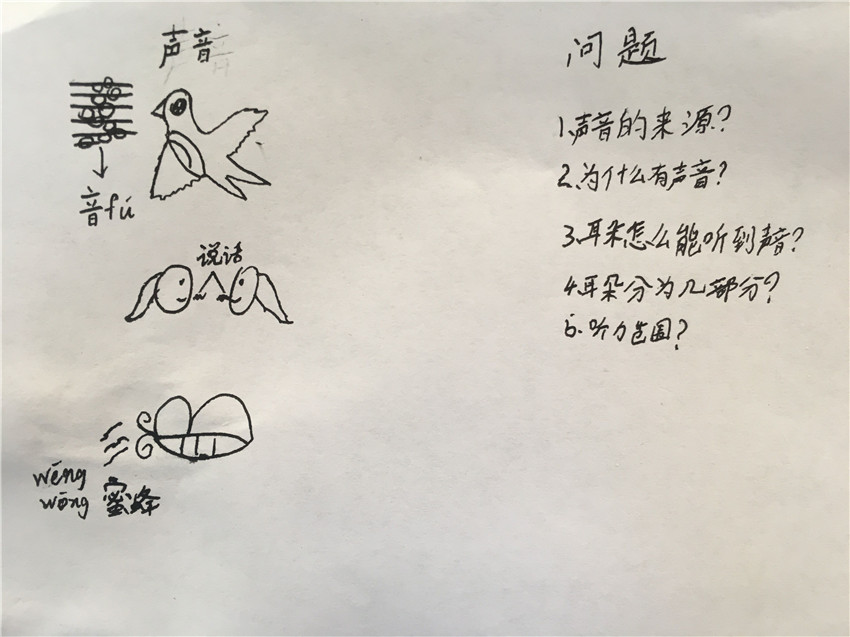 声音
音fú
说话
wēng
wēng
蜜蜂
问题
1.声音的来源?
2.为什么有声音?
3.耳朵怎么能听到声音?
4.耳朵分为几部分?
5.听力范围?